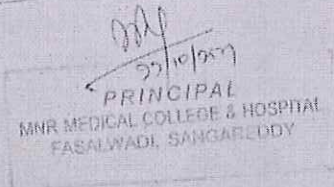 PRINCIPAL
MNR MEDICAL COLLEGE & HOSPITAL
FASALWADI, SANGAREDDY